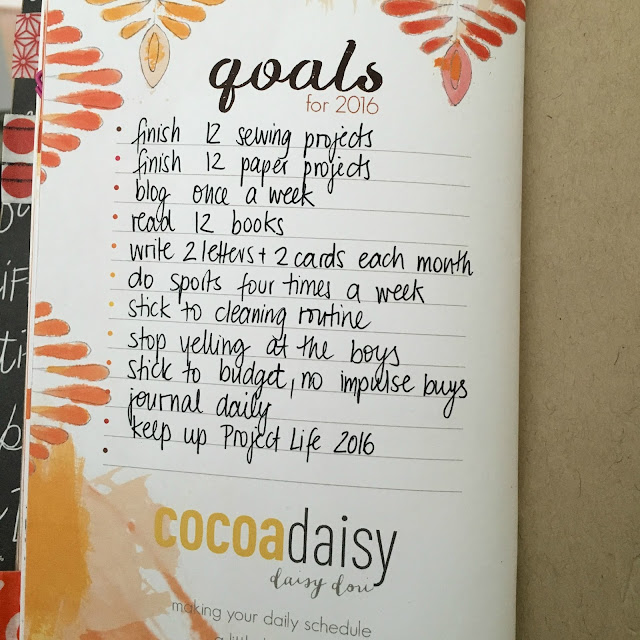 goals
for 2016
finish 12 sewing projects
finish 12 paper projects
blog once a week
read 12 books
write 2 letters + 2 cards each month
do sports four times a week
stick to cleaning routine
stop yelling at the boys
stick to budget, no impulse buys
journal daily
keep up Project Life 2016
cocoadaisy
daisy dori
making your daily schedule